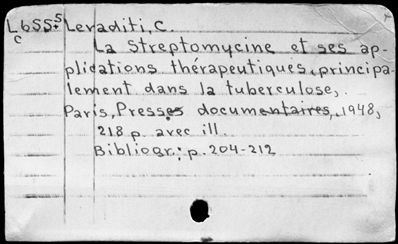 L6SS⁵ Levaditi, C.
c La Streptomycine et ses ap-
plications thérapeutiques, principa-
lement dans la tuberculose,
Paris, Presses documentaires, 1948,
218 p. avec ill.
Bibliogr; p. 204-212